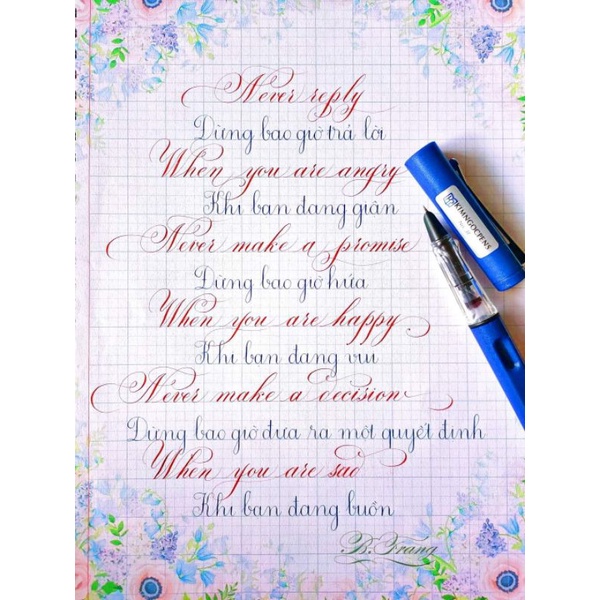 Never reply
Đừng bao giờ trả lời
When you are angry
Khi bạn đang giận
Never make a promise
Đừng bao giờ hứa
When you are happy
Khi bạn đang vui
Never make a decision
Đừng bao giờ đưa ra một quyết định
When you are sad
Khi bạn đang buồn
B. Trang
KHANGOCPENS